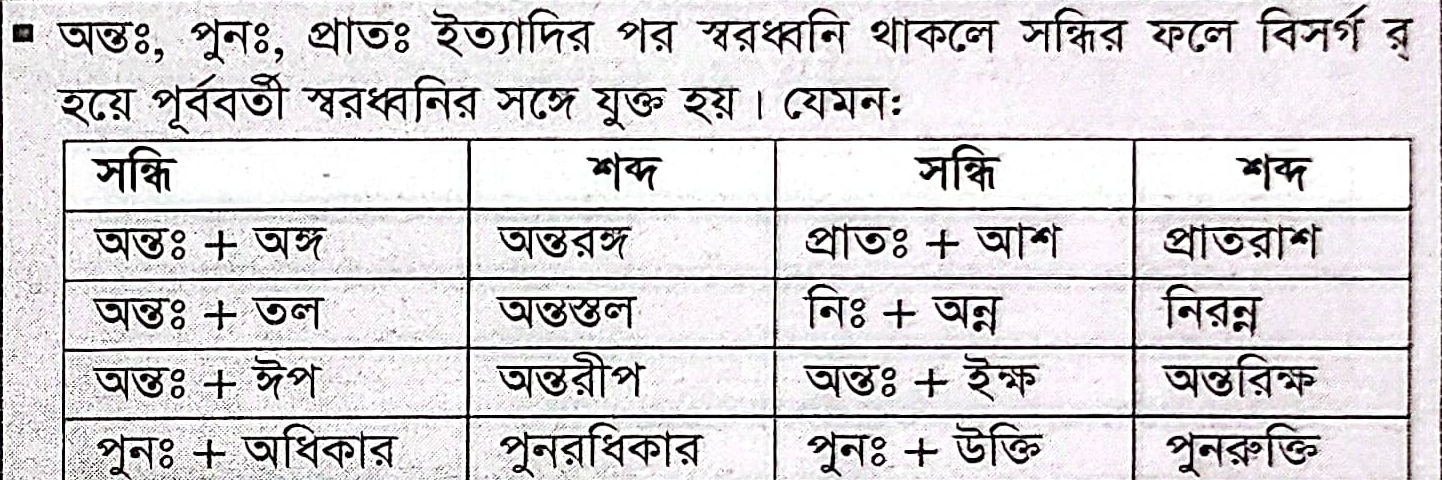 ▪ অন্তঃ, পুনঃ, প্রাতঃ ইত্যাদির পর স্বরধ্বনি থাকলে সন্ধির ফলে বিসর্গ র্
হয়ে পূর্ববর্তী স্বরধ্বনির সঙ্গে যুক্ত হয়। যেমন:
সন্ধি শব্দ সন্ধি শব্দ
অন্তঃ + অঙ্গ অন্তরঙ্গ প্রাতঃ + আশ প্রাতরাশ
অন্তঃ + তল অন্তস্তল নিঃ + অন্ন নিরন্ন
অন্তঃ + ঈপ অন্তরীপ অন্তঃ + ইক্ষ অন্তরিক্ষ
পুনঃ + অধিকার পুনরধিকার পুনঃ + উক্তি পুনরুক্তি